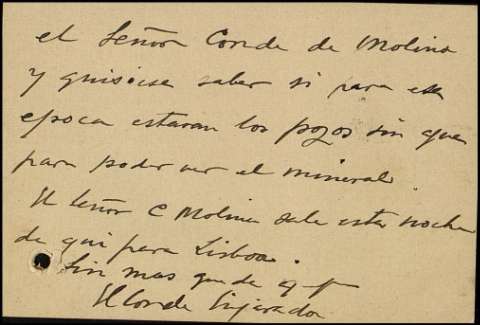 el Señor Conde de Molina
y quisiese saber si para esa
epoca estaran los pozos sin agua
para poder ver el mineral.
El Señor C Molina sale esta noche
de qui para Lisboa.
Sin mas queda
El Conde